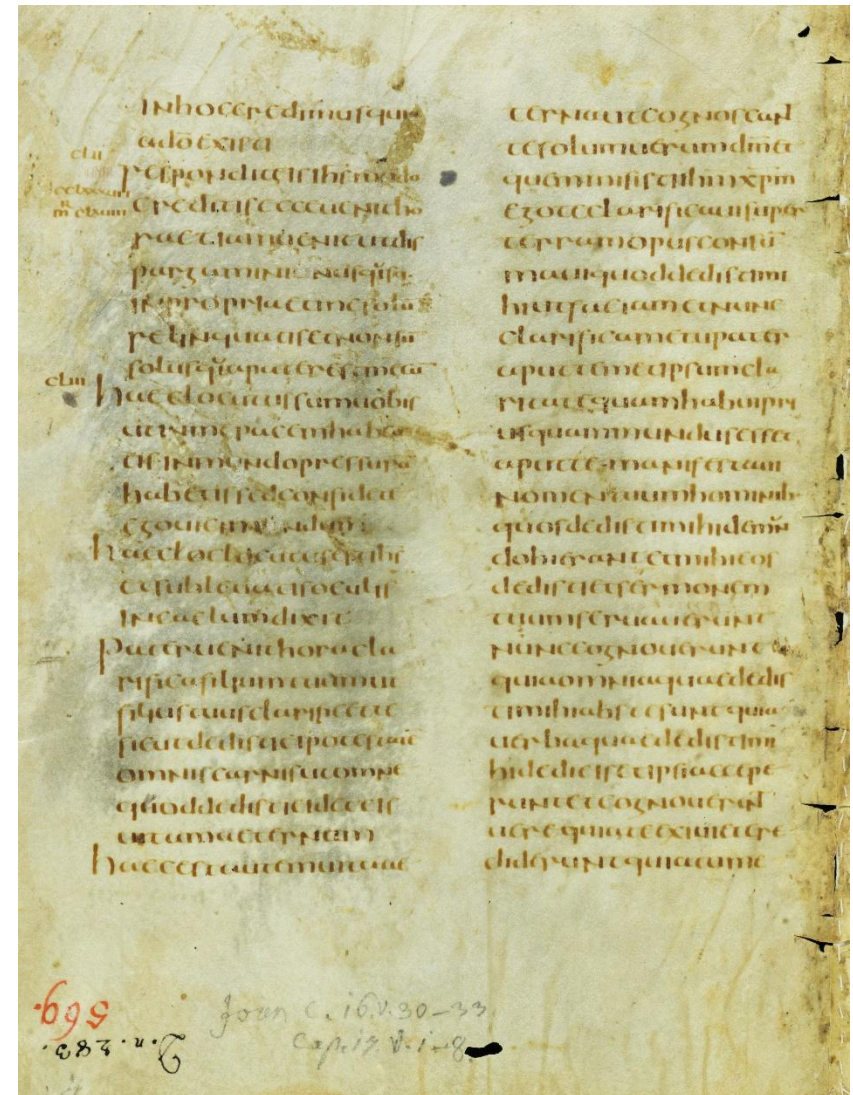 clii
cliii
inhoccredimusquia
adōexisti
responditeisihsmodo
creditisecceuenitho
raetiamuenitutdis
pargamini
inpropriaetmesolū
relinquatisetnonsū
solusqīapaterestmecū
haeclocutussumuobis
utinmepacemhabea
tisinmundopressurā
habetissedconfidete
egouicimundum
haec
etsubleuatisoculis
incaelumdixit
pateruenithoracla
rificafiliumtuumut
filiustuusclarificette
sicutdedistieipotestatē
omniscarnisutomne
quoddedistieideteis
uitamaeternam
haecestautemuitaae
ternautcognoscant
tesolumuerumdm̄et
quemmisistiihm̄xpm̄
egoteclarificauisuper
terramopusconsū
mauiquoddedistimi
hiutfaciametnunc
clarificametupater
aputtemetipsumcla
ritatequamhabuipri
usquammundusesset
aputtemanifestaui
nomentuumhominib
quosdedistimihidemūn
dedistietsermonem
tuumseruauerunt
nunccognouerunt
quiaomniaquaededis
timihiabstesuntquia
uerbaquaededistimi
hidedieisetipsiaccepe
runtetcognouerunt
uerequiaateexiuietcre
dideruntquiatume
569.
D. n. 283.
Joan c. 16. v. 30-33
Cap. 17. v. 1-8.